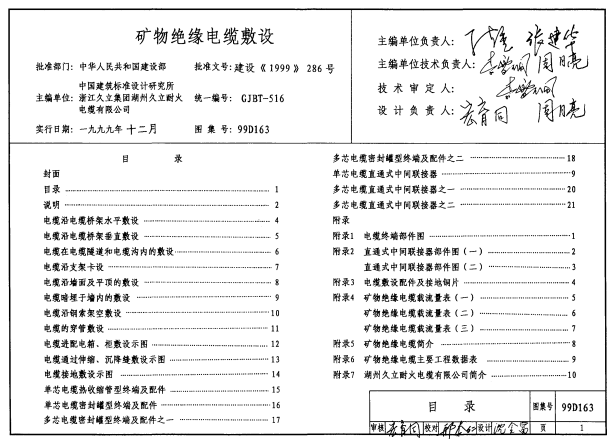 矿物绝缘电缆敷设
批准部门: 中华人民共和国建设部 批准文号: 建设《1999》286号
主编单位: 中国建筑标准设计研究所
浙江久立集团湖州久立耐火
电缆有限公司
统一编号: GJBT-516
实行日期: 一九九九年十二月 图集号: 99D163
主编单位负责人:
主编单位技术负责人: 周月亮
技术审定人:
设计负责人: 周月亮
目 录
封面
目录 1
说明 2
电缆沿电缆桥架水平敷设 4
电缆沿电缆桥架垂直敷设 5
电缆在电缆隧道和电缆沟内的敷设 6
电缆沿支架卡设 7
电缆沿墙面及平顶的敷设 8
电缆暗埋于墙内的敷设 9
电缆沿钢索架空敷设 10
电缆的穿管敷设 11
电缆进配电箱、柜敷设示图 12
电缆通过伸缩、沉降缝敷设示图 13
电缆接地敷设示图 14
单芯电缆热收缩管型终端及配件 15
单芯电缆密封罐型终端及配件 16
多芯电缆密封罐型终端及配件之一 17
多芯电缆密封罐型终端及配件之二 18
单芯电缆直通式中间联接器 9
多芯电缆直通式中间联接器之一 20
多芯电缆直通式中间联接器之二 21
附录
附录1 电缆终端部件图 1
附录2 直通式中间联接器部件图(一) 2
直通式中间联接器部件图(二) 3
附录3 电缆敷设配件及接地铜片 4
附录4 矿物绝缘电缆载流量表(一) 5
矿物绝缘电缆载流量表(二) 6
矿物绝缘电缆载流量表(三) 7
附录5 矿物绝缘电缆简介 8
附录6 矿物绝缘电缆主要工程数据表 9
附录7 湖州久立耐火电缆有限公司简介 10
目 录 图集号 99D163
审核 校对 设计 页 1